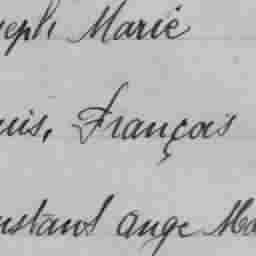 seph Marie
uis, François
nstant ange Ma